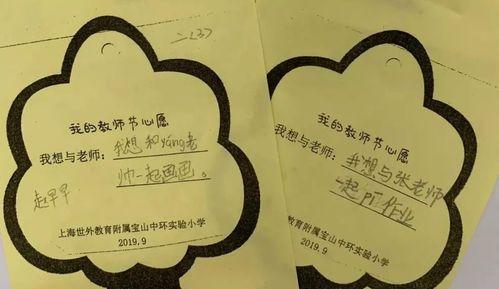 二(3)
我的教师节心愿
我想与老师：我想和yáng老
师一起画画。
赵早早
上海世外教育附属宝山中环实验小学
2019.9
我的教师节心愿
我想与老师：我想与张老师
一起pī作业
教育附属宝山中环实验小学
2019.9